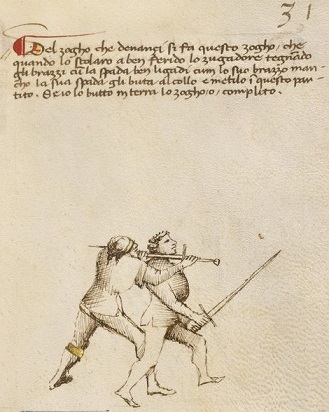 31
Del zogho che denanzi si fa questo zogho, che
quando lo scolaro a ben ferido lo zugadore tegnado
gli brazzi cū la spada ben ligadi cum lo suo brazzo man-
cho la sua spada gli buta al collo e metilo ī questo par-
tito. Se io lo butto in terra lo zogho, o, completo.